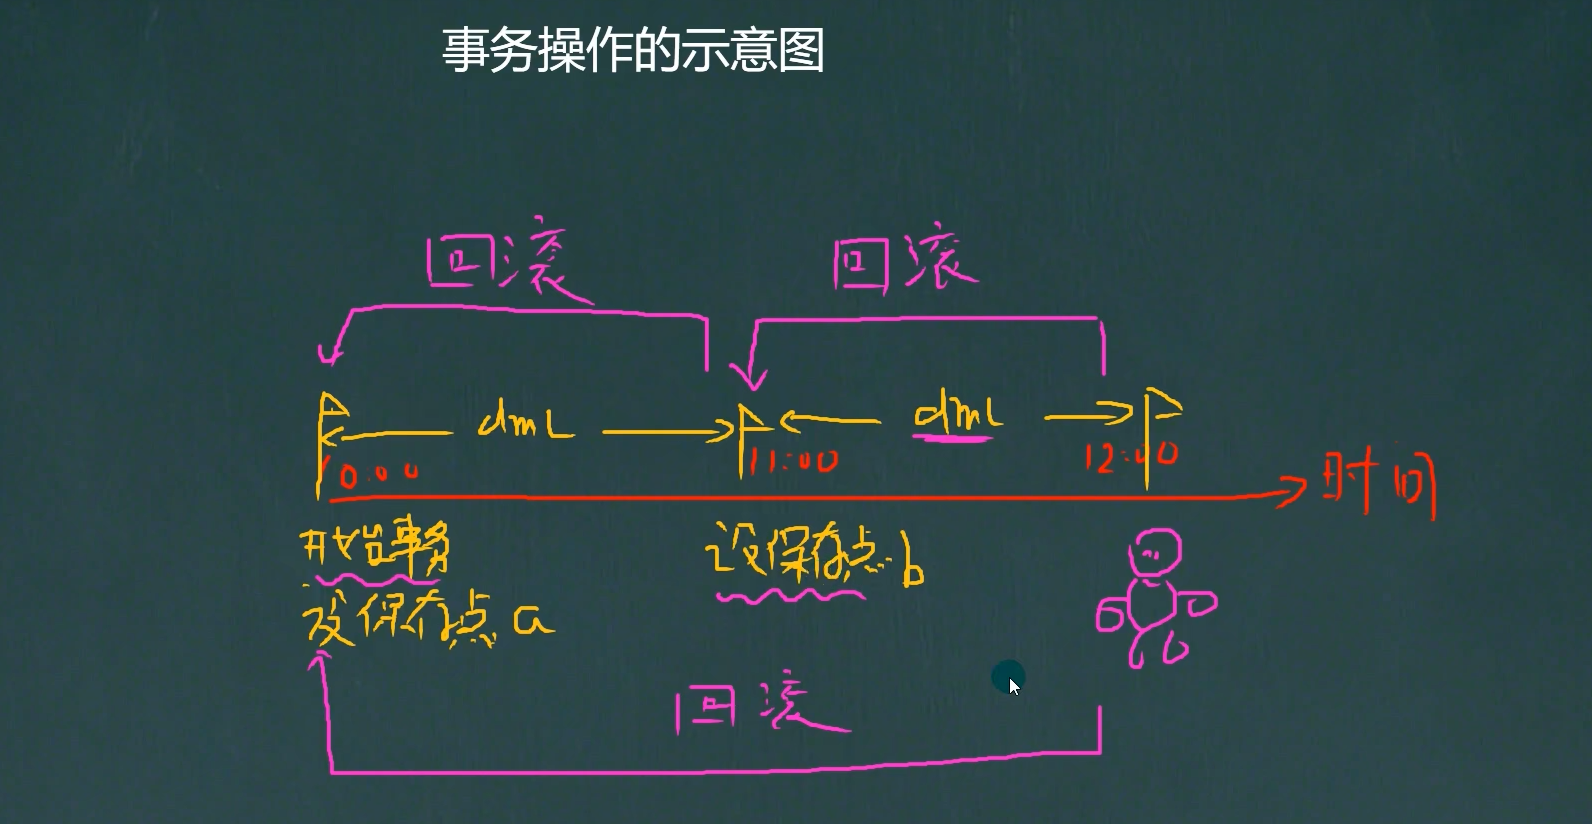 事务操作的示意图
回滚
回滚
dmL
dmL
10:00
11:00
12:00
时间
开始事务
设保存点 b
设保存点 a
回滚